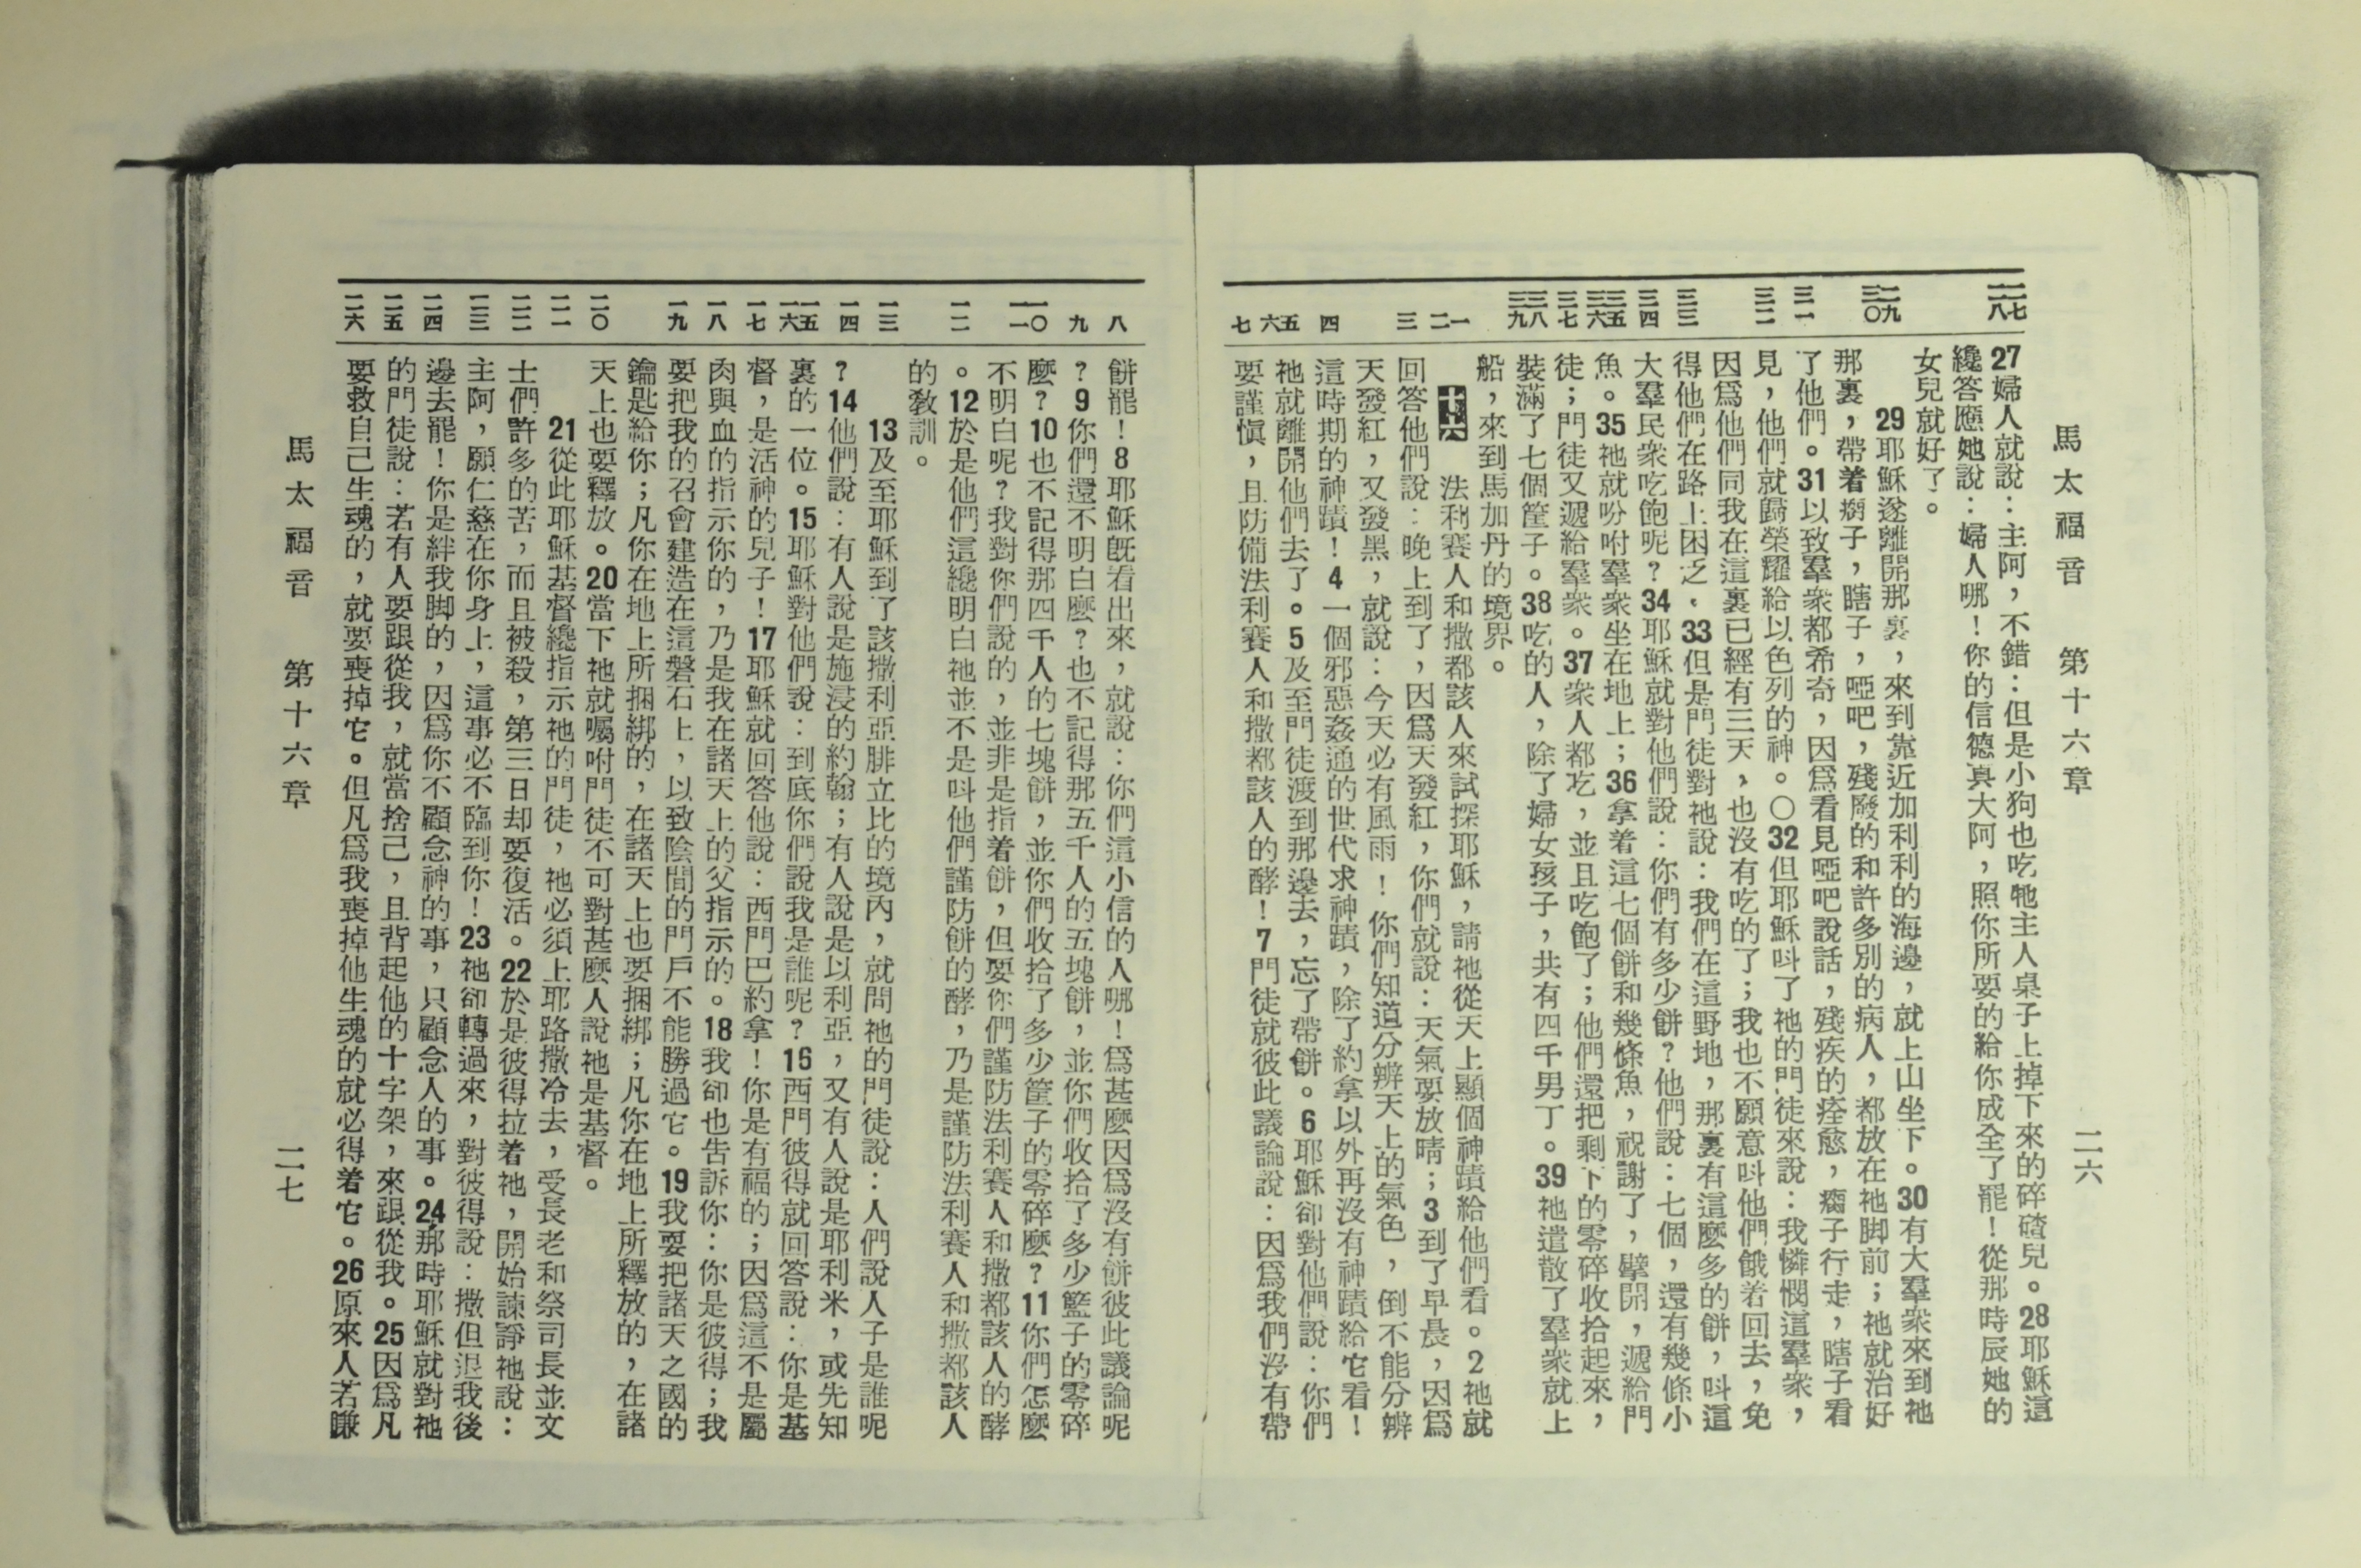 馬太福音 第十六章 二六
二七 二八 二九 三〇 三一 三二 三三 三四 三五 三六 三七 三八 三九 一 二 三 四 五 六 七
27婦人就說：主阿，不錯：但是小狗也吃牠主人桌子上掉下來的碎碴兒。28耶穌這
纔答應她說：婦人哪！你的信德真大阿，照你所要的給你成全了罷！從那時辰她的
女兒就好了。
29耶穌遂離開那裏，來到靠近加利利的海邊，就上山坐下。30有大羣衆來到祂
那裏，帶着瘸子，瞎子，啞吧，殘廢的和許多別的病人，都放在祂脚前；祂就治好
了他們。31以致羣衆都希奇，因爲看見啞吧說話，殘疾的痊愈，瘸子行走，瞎子看
見，他們就歸榮耀給以色列的神。〇32但耶穌呌了祂的門徒來說：我憐憫這羣衆，
因爲他們同我在這裏已經有三天，也沒有吃的了；我也不願意呌他們餓着回去，免
得他們在路上困乏。33但是門徒對祂說：我們在這野地，那裏有這麼多的餅，呌這
大羣民衆吃飽呢？34耶穌就對他們說：你們有多少餅？他們說：七個，還有幾條小
魚。35祂就吩咐羣衆坐在地上；36拿着這七個餅和幾條魚，祝謝了，擘開，遞給門
徒；門徒又遞給羣衆。37衆人都吃，並且吃飽了；他們還把剩下的零碎收拾起來，
裝滿了七個筐子。38吃的人，除了婦女孩子，共有四千男丁。39祂遣散了羣衆就上
船，來到馬加丹的境界。
十六 法利賽人和撒都該人來試探耶穌，請祂從天上顯個神蹟給他們看。2祂就
回答他們說：晚上到了，因爲天發紅，你們就說：天氣要放晴；3到了早晨，因爲
天發紅，又發黑，就說：今天必有風雨！你們知道分辨天上的氣色，倒不能分辨
這時期的神蹟！4一個邪惡姦通的世代求神蹟，除了約拿以外再沒有神蹟給它看！
祂就離開他們去了。5及至門徒渡到那邊去，忘了帶餅。6耶穌卻對他們說：你們
要謹愼，且防備法利賽人和撒都該人的酵！7門徒就彼此議論說：因爲我們沒有帶
八 九 一〇 一一 一二 一三 一四 一五 一六 一七 一八 一九 二〇 二一 二二 二三 二四 二五 二六
餅罷！8耶穌旣看出來，就說：你們這小信的人哪！爲甚麼因爲沒有餅彼此議論呢
？9你們還不明白麼？也不記得那五千人的五塊餅，並你們收拾了多少籃子的零碎
麼？10也不記得那四千人的七塊餅，並你們收拾了多少筐子的零碎麼？11你們怎麼
不明白呢？我對你們說的，並非是指着餅，但要你們謹防法利賽人和撒都該人的酵
。12於是他們這纔明白祂並不是呌他們謹防餅的酵，乃是謹防法利賽人和撒都該人
的敎訓。
13及至耶穌到了該撒利亞腓立比的境內，就問祂的門徒說：人們說人子是誰呢
？14他們說：有人說是施浸的約翰；有人說是以利亞，又有人說是耶利米，或先知
裏的一位。15耶穌對他們說：到底你們說我是誰呢？16西門彼得就回答說：你是基
督，是活神的兒子！17耶穌就回答他說：西門巴約拿！你是有福的；因爲這不是屬
肉與血的指示你的，乃是我在諸天上的父指示的。18我卻也告訴你：你是彼得；我
要把我的召會建造在這磐石上，以致陰間的門戶不能勝過它。19我要把諸天之國的
鑰匙給你；凡你在地上所捆綁的，在諸天上也要捆綁；凡你在地上所釋放的，在諸
天上也要釋放。20當下祂就囑咐門徒不可對甚麼人說祂是基督。
21從此耶穌基督纔指示祂的門徒，祂必須上耶路撒冷去，受長老和祭司長並文
士們許多的苦，而且被殺，第三日却要復活。22於是彼得拉着祂，開始諫諍祂說：
主阿，願仁慈在你身上，這事必不臨到你！23祂卻轉過來，對彼得說：撒但退我後
邊去罷！你是絆我脚的，因爲你不顧念神的事，只顧念人的事。24那時耶穌就對祂
的門徒說：若有人要跟從我，就當捨己，且背起他的十字架，來跟從我。25因爲凡
要救自己生魂的，就要喪掉它。但凡爲我喪掉他生魂的就必得着它。26原來人若賺
馬太福音 第十六章 二七